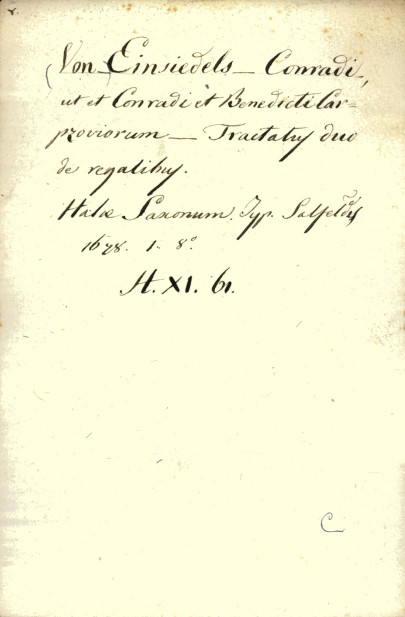 (Von Einsiedels — Conradi,
ut et Conradi et Benedicti Car=
pzoviorum — Tractatus duo
de regalibus.
Halæ Saxonum. Typ. Salfeldij
1678. 1. 8°
A. XI. 61.
C